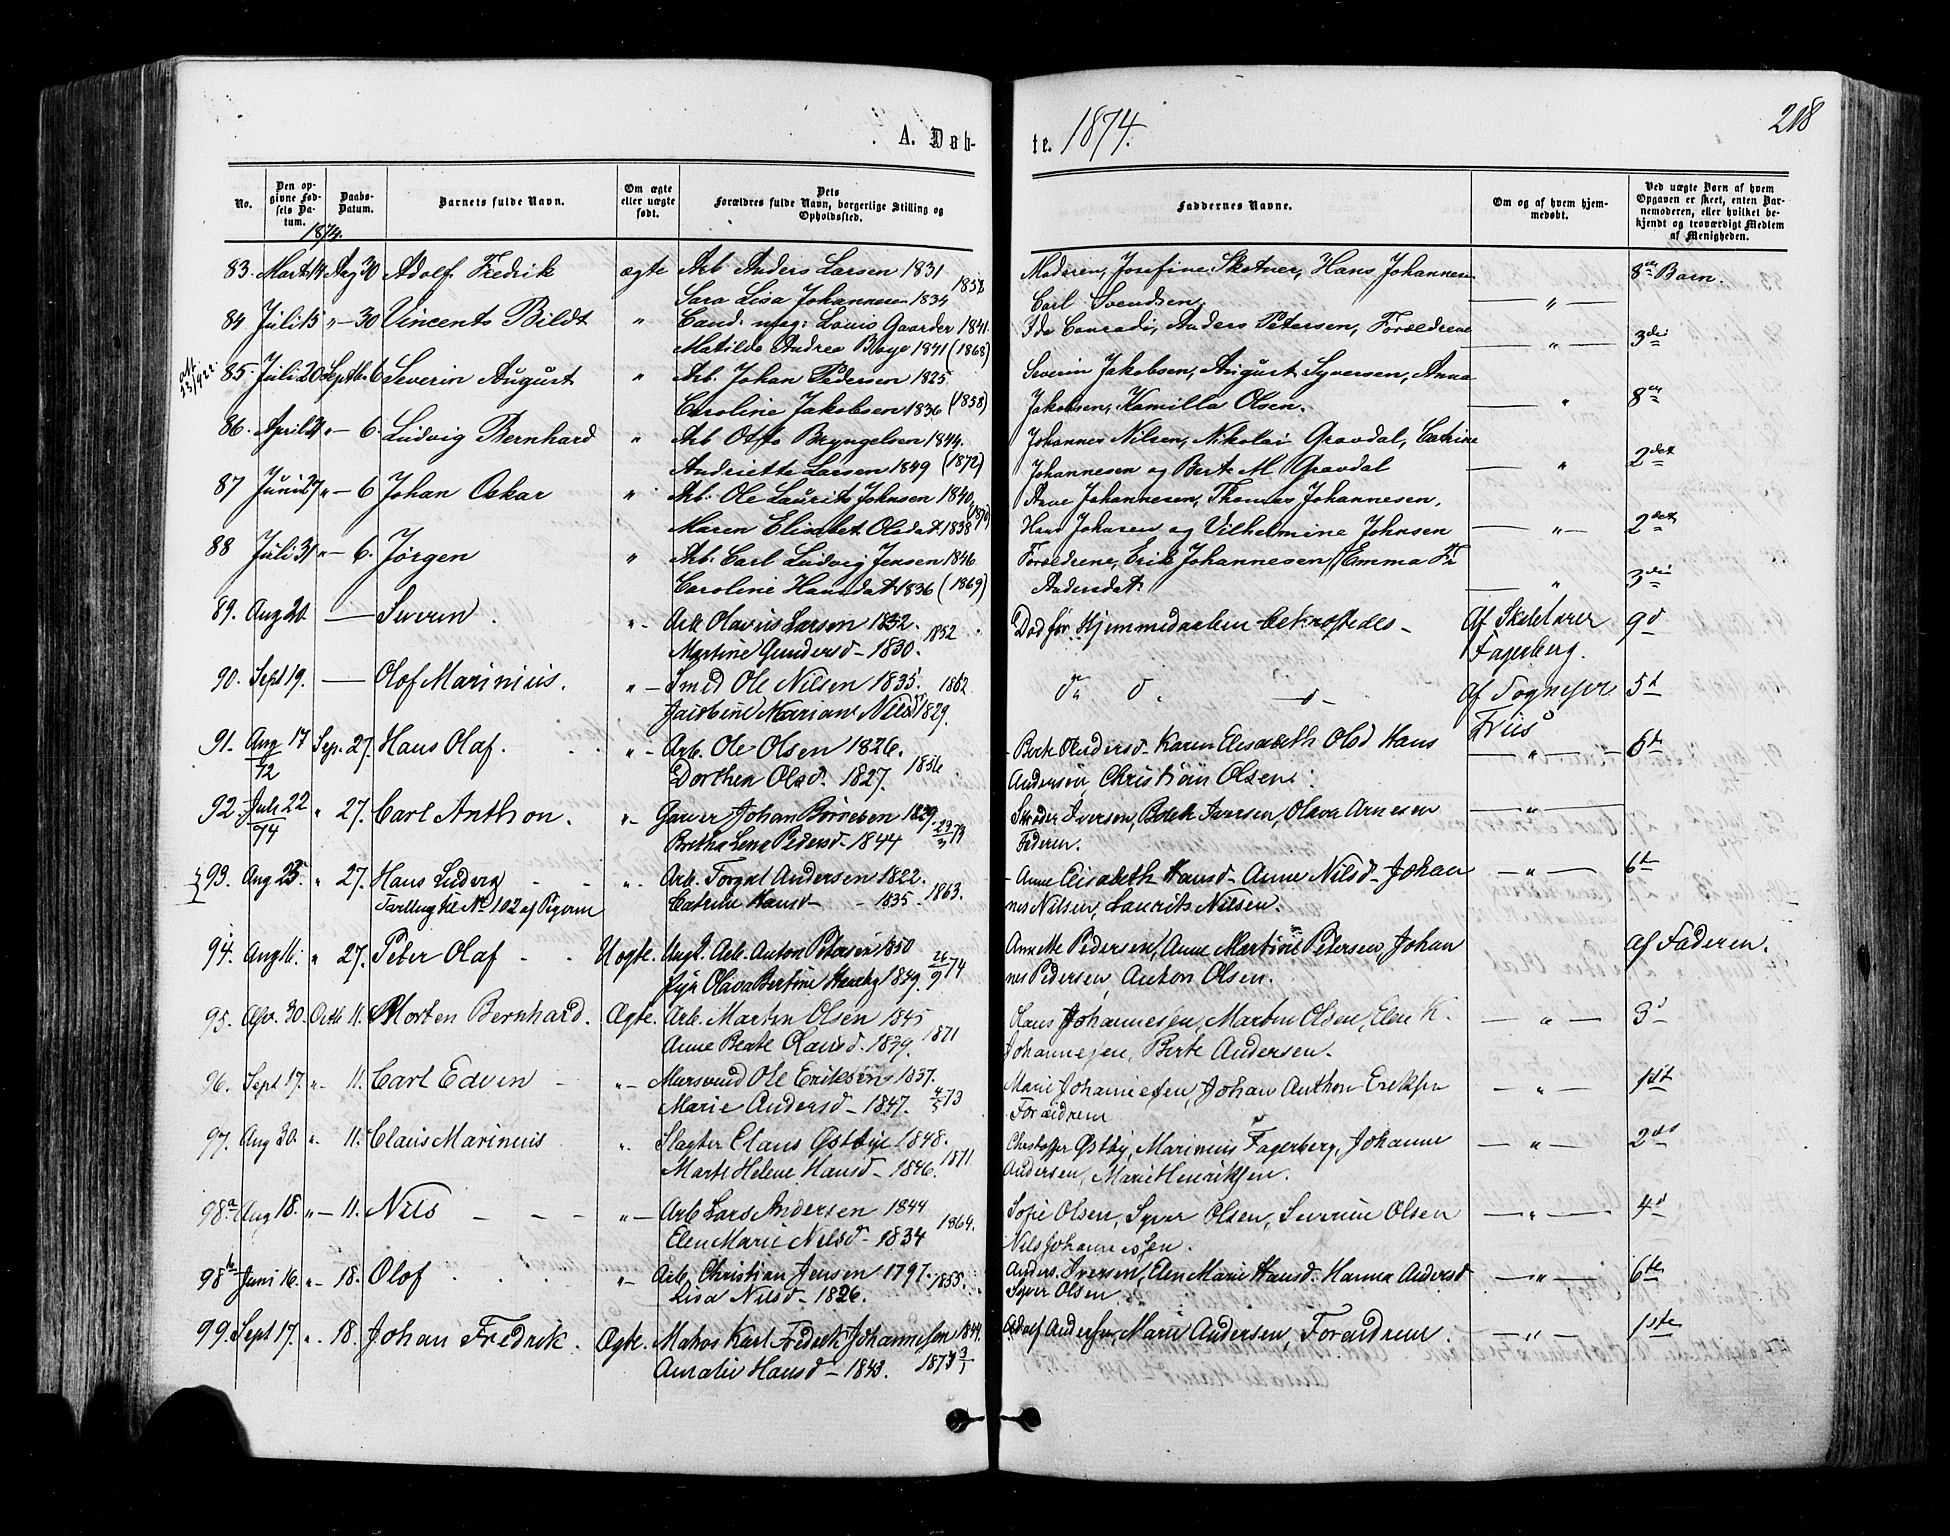 218
A. Døb-
te. 1874.
No.
Den opgivne Fødsels Datum.
Daabs-Datum.
Barnets fulde Navn.
Om ægte eller uægte født.
Dets Forældres fulde Navn, borgerlige Stilling og Opholdssted.
Faddernes Navne.
Om og af hvem hjemmedøbt.
Ved uægte Børn af hvem Opgaven er skeet, enten Barnemoderen, eller hvilket bekjendt og troværdigt Medlem af Menigheden.
1874.
83. Marts 14 Aug 30 Adolf Fredrik ægte Arb Anders Larsen 1831 Moderen, Josefine Skotner, Hans Johannesen 8de Barn.
Sara Lisa Johannesen 1834 1858 Carl Svendsen — " —
84 Juli 15 " — 30 Vincents Bildt " Cand. mag: Louis Gaarder 1841. Ida Conradi, Anders Petersen, Forældrene
Matilde Andrea Boye 1841 (1868) — " — 3die
att 23/9 22.
85. Juli 20 Septb. 6 Severin August " Arb. Johan Pedersen 1825. Severin Jakobsen, August Syversen, Anna
Caroline Jakobsen 1836 (1858) Jakobsen, Kamilla Olsen. — " 8de
86. April 21 " — 6. Ludvig Bernhard " Arb Otto Bryngelsen 1844. Johannes Nilsen, Nikolai Gravdal, Catrine
Andriette Larsen 1849 (1872) Johannesen og Berte M Gravdal — " 2det
87 Juni 27 " — 6 Johan Oskar " Arb. Ole Laurits Johnsen 1840. Anne Johannesen, Thomas Johannesen,
Maren Elisabet Olsdat 1838 Hans Johnsen og Vilhelmine Johnsen — " — 2det
88 Juli 31 " — 6. Jørgen " Arb. Carl Ludvig Jensen 1846. Forældrene, Erik Johannesen, Emma Fr
Caroline Hansdat 1836 (1869) Andersdat — " 3die
89. Aug 20. — Severin. " - Arb Olavus Larsen 1832. Død før Hjemmedaaben bekræftedes — Af Skolelærer 9d
Martine Gundersd — 1830. 1852 Fagerberg.
90. Sept 19. — Olof Marinius. " — Smed Ole Nilsen 1835. 1862 do do — af Sogneprs 5t
Marian Nilsd 1829. Friis
91. Aug 17/72 Sep. 27. Hans Olaf. " - Arb. Ole Olsen 1826. Berte Andersd. Karen Elisabeth Olsd Hans — " — 6te
Dorthea Olsd. 1827. 1856 Andersen, Christian Olsen.
92. Juli 22/74 " 27. Carl Anthon. " - Garver Johan Børresen 1829. Skrøder Iversen, Berte Iversen, Olava Arnesen — " —
Bretha Lena Pedersd — 1844 Federen.
93. Aug 25. " 27. Hans Ludvig " . Arb. Torgal Andersen 1822. Anne Elisabeth Hansd. Anne Nilsd — Johan — " — 6t
Tvilling til No 102 af Pigerne Catrine Hansd — 1835. 1863. nes Nilsen, Laurits Nilsen.
94. Aug 16. " 27. Peter Olaf Uægte. Ungk. Arb. Anton Petersen 1850 Annette Pedersen, Anne Martine Petersen, Johan af Faderen.
Pige Olava Bertine 1849. 26/9 74 nes Pedersen, Anton Olsen.
95. Apr. 30. Octb 11. Morten Bernhard. Ægte. Arb. Martin Olsen 1845 Hans Johannesen, Martin Olsen, Elen K. — " — 3d
Anne Beate Olausd. 1839. 1871 Johannesen, Berte Andersen.
96. Sept 17. " 11. Carl Edvin " - Mursvend Ole Eriksen 1837. Marie Johannesen, Johan Anthon Eriksen — " — 1st
Marie Andersd — 1847. 4/5 73 Forældrene
97. Aug 30. " 11. Claus Marinius " . Slagter Claus Østbye 1848. Christoffer Østby, Marinius Fagerberg, Johanne — " — 2det
Marte Helene Hansd — 1846. 1871 Andersen, Marie Henriksen.
98a Aug 18. " — 11. Nils " — Arb Lars Andersen 1844 Sofie Olsen, Syver Olsen, Severine Olsen — " — 4d
Elen Marie Nilsd — 1834 1864. Nils Johannessen.
98b Juni 16. " - 18. Olof " - Arb. Christian Jensen 1797. 1855. Anders Iversen, Elen Marie Hansd. Hanna Andersd — " — 6te
Lisa Nilsd — 1826. Syver Olsen
99. Sept 17. " 18. Johan Fredrik. Ægte. Matros Karl Fredrik Johannesen 1844. Adolf Andersen, Marie Andersen, Forældrene. — " — 1ste
Auralie Hansd — 1843. 1873 3/1